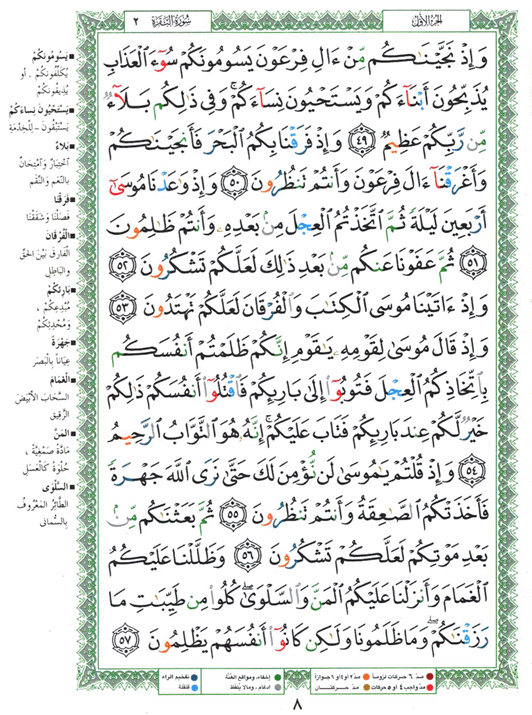 الجزء الأول
سورة البقرة ٢
وَإِذْ نَجَّيْنَٰكُم مِّنْ ءَالِ فِرْعَوْنَ يَسُومُونَكُمْ سُوٓءَ ٱلْعَذَابِ
يُذَبِّحُونَ أَبْنَآءَكُمْ وَيَسْتَحْيُونَ نِسَآءَكُمْ ۚ وَفِى ذَٰلِكُم بَلَآءٌ
مِّن رَّبِّكُمْ عَظِيمٌ ٤٩ وَإِذْ فَرَقْنَا بِكُمُ ٱلْبَحْرَ فَأَنجَيْنَٰكُمْ
وَأَغْرَقْنَآ ءَالَ فِرْعَوْنَ وَأَنتُمْ تَنظُرُونَ ٥٠ وَإِذْ وَٰعَدْنَا مُوسَىٰٓ
أَرْبَعِينَ لَيْلَةً ثُمَّ ٱتَّخَذْتُمُ ٱلْعِجْلَ مِنۢ بَعْدِهِۦ وَأَنتُمْ ظَٰلِمُونَ
٥١ ثُمَّ عَفَوْنَا عَنكُم مِّنۢ بَعْدِ ذَٰلِكَ لَعَلَّكُمْ تَشْكُرُونَ ٥٢
وَإِذْ ءَاتَيْنَا مُوسَى ٱلْكِتَٰبَ وَٱلْفُرْقَانَ لَعَلَّكُمْ تَهْتَدُونَ ٥٣
وَإِذْ قَالَ مُوسَىٰ لِقَوْمِهِۦ يَٰقَوْمِ إِنَّكُمْ ظَلَمْتُمْ أَنفُسَكُم
بِٱتِّخَاذِكُمُ ٱلْعِجْلَ فَتُوبُوٓا۟ إِلَىٰ بَارِئِكُمْ فَٱقْتُلُوٓا۟ أَنفُسَكُمْ ذَٰلِكُمْ
خَيْرٌ لَّكُمْ عِندَ بَارِئِكُمْ فَتَابَ عَلَيْكُمْ ۚ إِنَّهُۥ هُوَ ٱلتَّوَّابُ ٱلرَّحِيمُ
٥٤ وَإِذْ قُلْتُمْ يَٰمُوسَىٰ لَن نُّؤْمِنَ لَكَ حَتَّىٰ نَرَى ٱللَّهَ جَهْرَةً
فَأَخَذَتْكُمُ ٱلصَّٰعِقَةُ وَأَنتُمْ تَنظُرُونَ ٥٥ ثُمَّ بَعَثْنَٰكُم مِّنۢ
بَعْدِ مَوْتِكُمْ لَعَلَّكُمْ تَشْكُرُونَ ٥٦ وَظَلَّلْنَا عَلَيْكُمُ
ٱلْغَمَامَ وَأَنزَلْنَا عَلَيْكُمُ ٱلْمَنَّ وَٱلسَّلْوَىٰ ۖ كُلُوا۟ مِن طَيِّبَٰتِ مَا
رَزَقْنَٰكُمْ ۖ وَمَا ظَلَمُونَا وَلَٰكِن كَانُوٓا۟ أَنفُسَهُمْ يَظْلِمُونَ ٥٧
يَسُومُونَكُمْ
يُكَلِّفُونَكُمْ . أو
يُذِيقُونَكُمْ
يَسْتَحْيُونَ نِسَاءَكُمْ
يَسْتَبْقُونَ - لِلْخِدْمَةِ
بَلَاءٌ
اخْتِبَارٌ وَامْتِحَانٌ
بِالنِّعَمِ وَالنِّقَمِ
فَرَقْنَا
فَصَلْنَا وَشَقَقْنَا
الْفُرْقَانَ
الْفَارِقَ بَيْنَ الحَقِّ
وَالبَاطِلِ
بَارِئِكُمْ
مُبْدِعِكُمْ ،
وَمُحْدِثِكُمْ
جَهْرَةً
عِيَاناً بِالْبَصَرِ
الْغَمَامَ
السَّحَابَ الأَبْيَضَ
الرَّقِيقَ
الْمَنَّ
مَادَّةٌ صَمْغِيَّةٌ ،
حُلْوَةٌ كَالْعَسَلِ
السَّلْوَى
الطَّائِرُ المَعْرُوفُ
بِالسُّمَانَى
مدّ ٦ حركات لزوماً مدّ ٢ أو ٤ أو ٦ جوازاً إخفاء، ومواقع الغُنَّة تفخيم الراء
مدّ واجب ٤ أو ٥ حركات مدّ حركتان ادغام ، وما لا يُلفظ قلقلة
٨